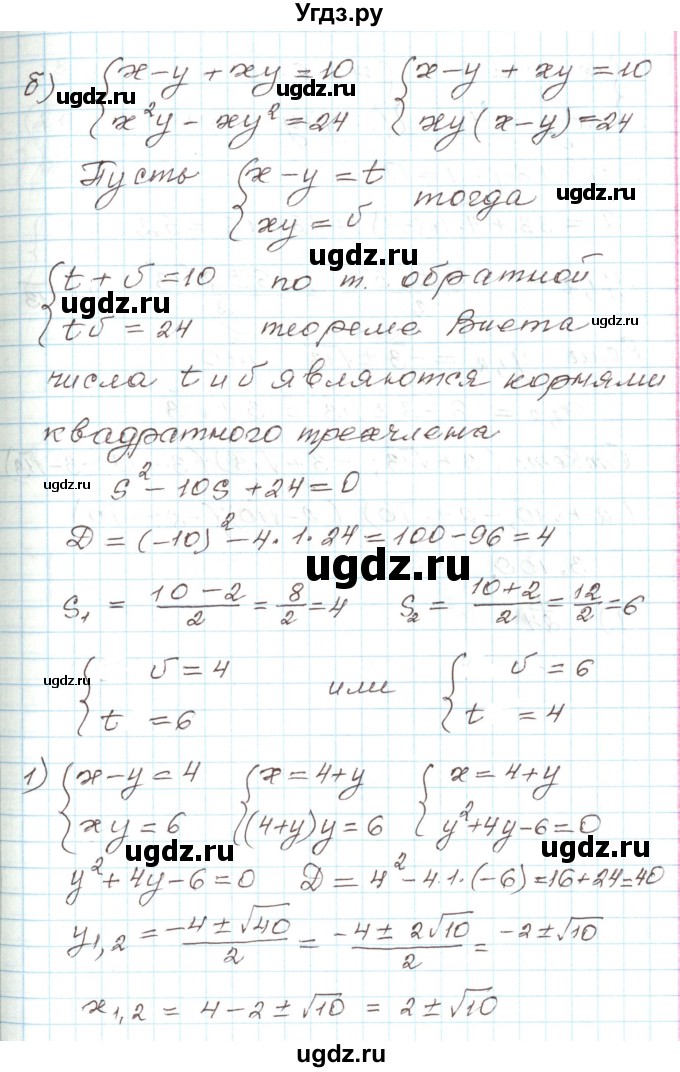 Угдз.ру
б) { x-y+xy=10 { x-y+xy=10
ugdz.ru
{ x²y-xy²=24 { xy(x-y)=24
ugdz.ru
Пусть { x-y=t
{ xy=б тогда
ugdz.ru
ugdz.ru
{ t+б=10 по т. обратной
ugdz.ru
{ tб=24 теореме Виета
ugdz.ru
числа t и б являются корнями
квадратного трехчлена
ugdz.ru
S²-10S+24=0
ugdz.ru
D=(-10)²-4·1·24=100-96=4
ugdz.ru
S₁ = (10-2)/2 = 8/2 = 4 S₂ = (10+2)/2 = 12/2 = 6
ugdz.ru
{ б=4 или { б=6
ugdz.ru
{ t=6 { t=4
1) { x-y=4 { x=4+y { x=4+y
{ xy=6 { (4+y)y=6 { y²+4y-6=0
ugdz.ru
ugdz.ru
y²+4y-6=0 D=4²-4·1·(-6)=16+24=40
y₁,₂ = (-4±√40)/2 = (-4±2√10)/2 = -2±√10
x₁,₂ = 4-2±√10 = 2±√10
ugdz.ru